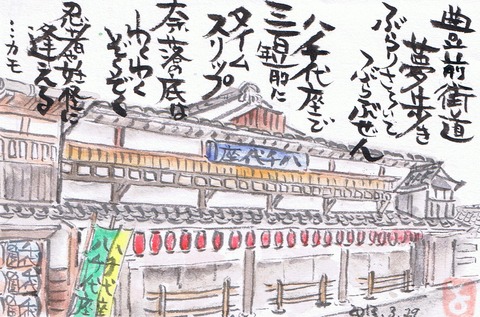 豊前街道
夢歩き
ぶらりさるいて
つぶらぶせん
八千代座で
三百年前に
タイム
スリップ
奈落の底は
わくわく
ぞくぞく
忍者や妖怪に
逢える
…カモ
八千代座
八千代座
八千代座
2013.3.29